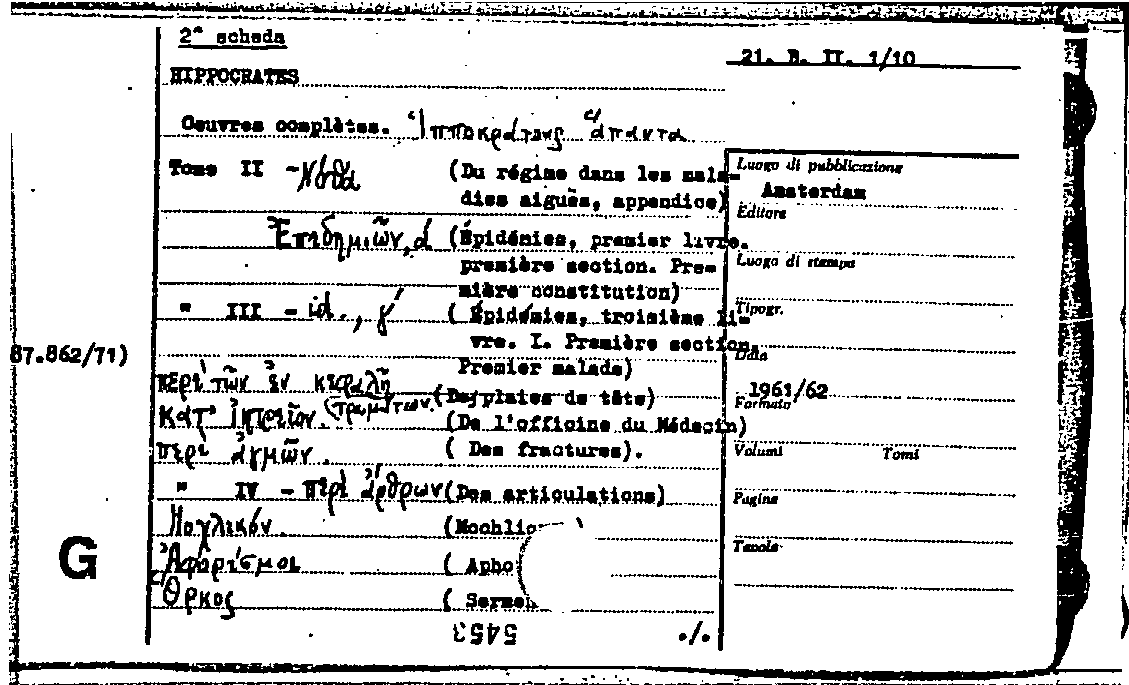 2ª scheda
21. B. II. 1/10
HIPPOCRATES
Oeuvres complètes. Ἱπποκράτους ἅπαντα
Tome II - Νόθα (Du régime dans les mala-
dies aiguës, appendice)
Ἐπιδημιῶν, α΄ (Épidémies, premier livre.
première section. Pre-
mière constitution)
" III - id., γ΄ ( Épidémies, troisième li-
vre. I. Première section.
Premier malade)
87.862/71)
περὶ τῶν ἐν κεφαλῇ
τρωμάτων. (Des plaies de tête)
κατ' ἰητρεῖον. (De l'officine du Médecin)
περὶ ἀγμῶν. ( Des fractures).
" IV - περὶ ἄρθρων (Des articulations)
Μοχλικόν. (Mochli
Ἀφορισμοι ( Apho
Ὅρκος ( Serme
G
5453
./.
Luogo di pubblicazione
Amsterdam
Editore
Luogo di stampa
Tipogr.
Data
1961/62
Formato
Volumi Tomi
Pagine
Tavole